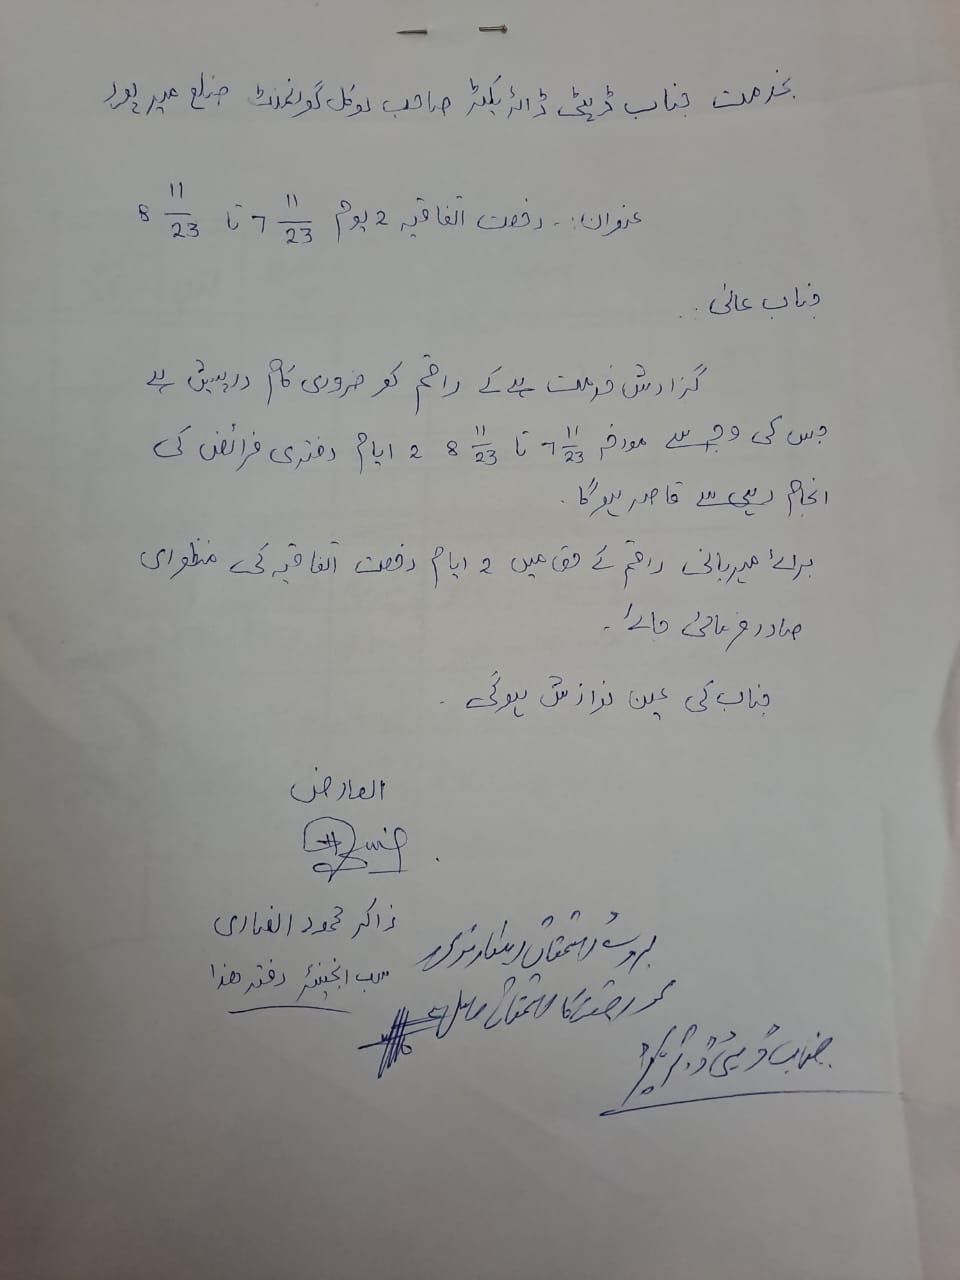 بخدمت جناب ڈپٹی ڈائریکٹر صاحب لوکل گورنمنٹ ضلع میرپور
عنوان:۔ رخصت اتفاقیہ 2 یوم 7 11/23 تا 8 11/23
جناب عالی
گزارش خدمت ہے کے راقم کو ضروری کام درپیش ہے
جس کی وجہ سے مورخہ 7 11/23 تا 8 11/23 2 ایام دفتری فرائض کی
انجام دہی سے قاصر ہوگا۔
برائے مہربانی راقم کے حق میں 2 ایام رخصت اتفاقیہ کی منظوری
صادر فرمائی جائے۔
جناب کی عین نوازش ہوگی۔
العارض
ذاکر محمود انصاری
سب انجینئر دفتر ھذا
جناب ڈپٹی ڈائریکٹر